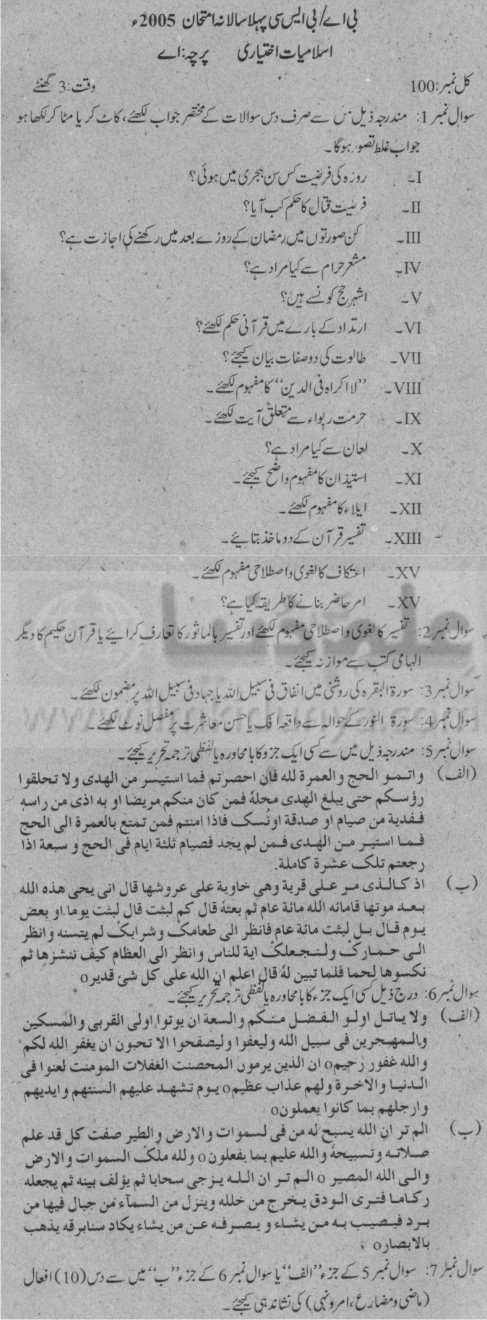 بی اے/بی ایس سی پہلا سالانہ امتحان 2005ء
اسلامیات اختیاری پرچہ: اے
کل نمبر: 100 وقت: 3 گھنٹے
سوال نمبر 1: مندرجہ ذیل میں سے صرف دس سوالات کے مختصر جواب لکھئے، کاٹ کر یا مٹا کر لکھا ہو
جواب غلط تصور ہوگا۔
I۔ روزہ کی فرضیت کس سن ہجری میں ہوئی؟
II۔ فرضیت قتال کا حکم کب آیا؟
III۔ کن صورتوں میں رمضان کے روزے بعد میں رکھنے کی اجازت ہے؟
IV۔ مشعر حرام سے کیا مراد ہے؟
V۔ اشہر حج کونسے ہیں؟
VI۔ ارتداد کے بارے میں قرآنی حکم لکھئے؟
VII۔ طالوت کی دو صفات بیان کیجئے؟
VIII۔ "لا اکراہ فی الدین" کا مفہوم لکھئے۔
IX۔ حرمت ربواء سے متعلق آیت لکھئے۔
X۔ لعان سے کیا مراد ہے؟
XI۔ استیذان کا مفہوم واضح کیجئے۔
XII۔ ایلاء کا مفہوم لکھئے۔
XIII۔ تفسیر قرآن کے دو ماخذ بتائیے۔
XV۔ اعتکاف کا لغوی و اصطلاحی مفہوم لکھئے۔
XV۔ امر حاضر بنانے کا طریقہ کیا ہے؟
سوال نمبر 2: تفسیر کا لغوی و اصطلاحی مفہوم لکھئے اور تفسیر بالماثور کا تعارف کرائیے یا قرآن حکیم کا دیگر
الہامی کتب سے موازنہ کیجئے۔
سوال نمبر 3: سورۃ البقرہ کی روشنی میں انفاق فی سبیل اللہ یا جہاد فی سبیل اللہ پر مضمون لکھئے۔
سوال نمبر 4: سورۃ النور کے حوالہ سے واقعہ افک یا حسن معاشرت پر مفصل نوٹ لکھئے۔
سوال نمبر 5: مندرجہ ذیل میں سے کسی ایک جزو کا بامحاورہ یا لفظی ترجمہ تحریر کیجئے۔
(الف) واتمو الحج والعمرة لله فان احصرتم فما استیسر من الهدی ولا تحلقوا
رؤسکم حتی یبلغ الهدی محلهٗ فمن کان منکم مریضا او به اذی من راسه
ففدیة من صیام او صدقة اونسک فاذا امنتم فمن تمتع بالعمرة الی الحج
فما استیر من الهدی فمن لم یجد فصیام ثلثة ایام فی الحج و سبعة اذا
رجعتم تلک عشرة کاملة.
(ب) اذ کالذی مر علی قریة وهی خاویة علی عروشها قال انی یحی هذه الله
بعد موتها فاماته الله مائة عام ثم بعثهٗ قال کم لبثت قال لبثت یوما او بعض
یوم قال بل لبثت مائة عام فانظر الی طعامک وشرابک لم یتسنه وانظر
الی حمارک ولنجعلک ایة للناس وانظر الی العظام کیف ننشزها ثم
نکسوها لحما فلما تبین لهٗ قال اعلم ان الله علی کل شئ قدیر٥
سوال نمبر 6: درج ذیل کسی ایک جزء کا بامحاورہ یا لفظی ترجمہ تحریر کیجئے۔
(الف) ولا یاتل اولو الفضل منکم والسعة ان یوتوا اولی القربی والمسکین
والمهجرین فی سبیل الله ولیعفوا ولیصفحوا الا تحبون ان یغفر الله لکم
والله غفور رحیم٥ ان الذین یرمون المحصنت الغفلات المومنت لعنوا فی
الدنیا والاخرة ولهم عذاب عظیم٥ یوم تشهد علیهم السنتهم وایدیهم
وارجلهم بما کانوا یعملون٥
(ب) الم تر ان الله یسبح له من فی لسموات والارض والطیر صفت کل قد علم
صلاته وتسبیحهٗ والله علیم بما یفعلون٥ ولله ملک السموات والارض
والی الله المصیر٥ الم تر ان الله یزجی سحابا ثم یؤلف بینه ثم یجعله
رکاما فتری الودق یخرج من خلله وینزل من السمآء من جبال فیها من
برد فیصیب به من یشاء و یصرفه عن من یشاء یکاد سنا برقه یذهب
بالابصار٥
سوال نمبر 7: سوال نمبر 5 کے جزء "الف" یا سوال نمبر 6 کے جزء "ب" میں سے دس (10) افعال
(ماضی و مضارع، امر و نہی) کی نشاندہی کیجئے۔